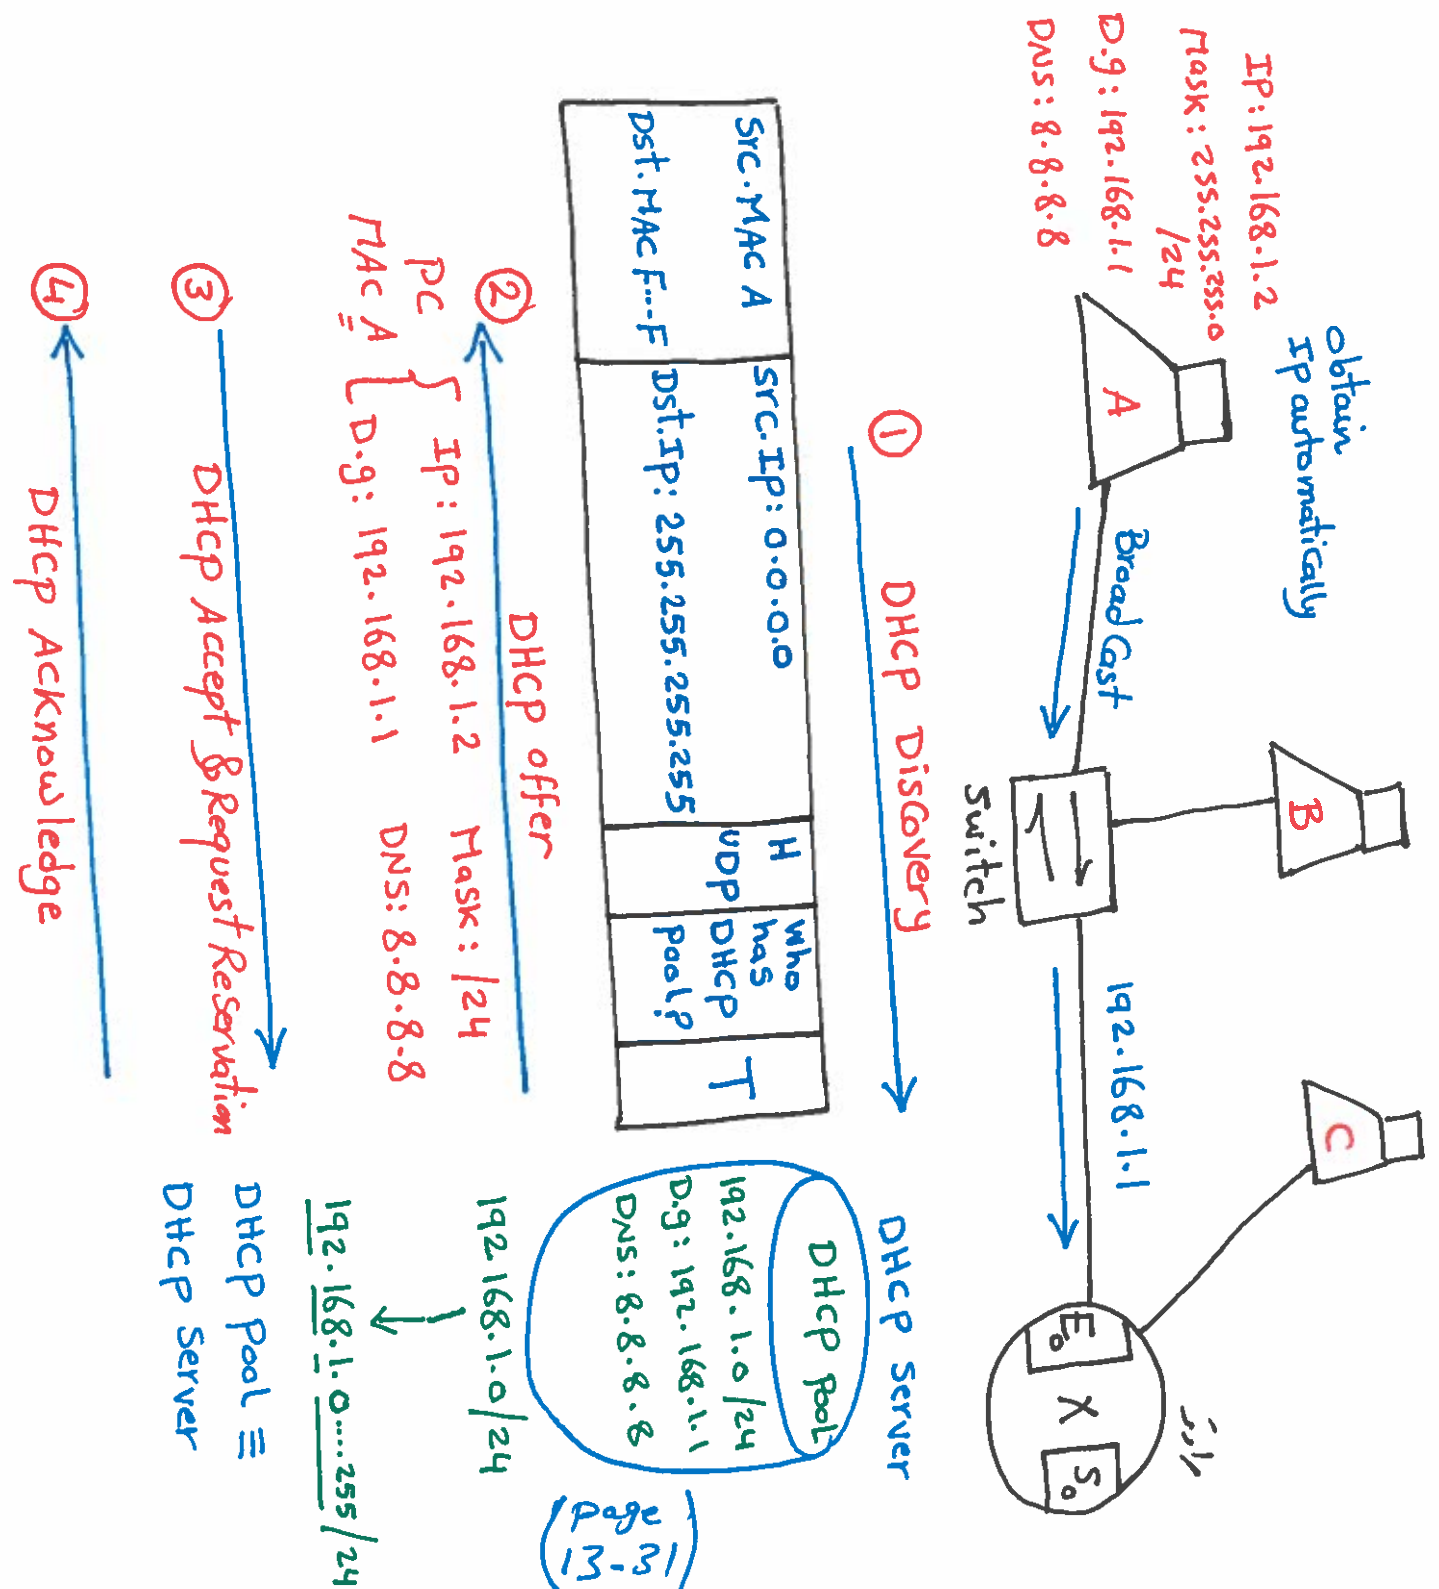 Obtain
Ip automatically
IP: 192.168.1.2
Mask: 255.255.255.0
/24
D.g: 192.168.1.1
DNS: 8.8.8.8
A
B
C
BroadCast
Switch
192.168.1.1
E0
X
S0
① DHCP Discovery
DHCP Server
Src.MAC A
Dst.MAC F...F
Src.Ip: 0.0.0.0
Dst.Ip: 255.255.255.255
H
UDP
Who
has
DHCP
Pool?
T
DHCP Pool
192.168.1.0/24
D.g: 192.168.1.1
DNS: 8.8.8.8
② DHCP offer
PC
MAC A
Ip: 192.168.1.2 Mask: /24
D.g: 192.168.1.1 DNS: 8.8.8.8
192.168.1.0/24
192.168.1.0....255/24
(Page
13-31)
③ DHCP Accept & Request Reservation
DHCP Pool ≡
DHCP Server
④ DHCP Acknowledge